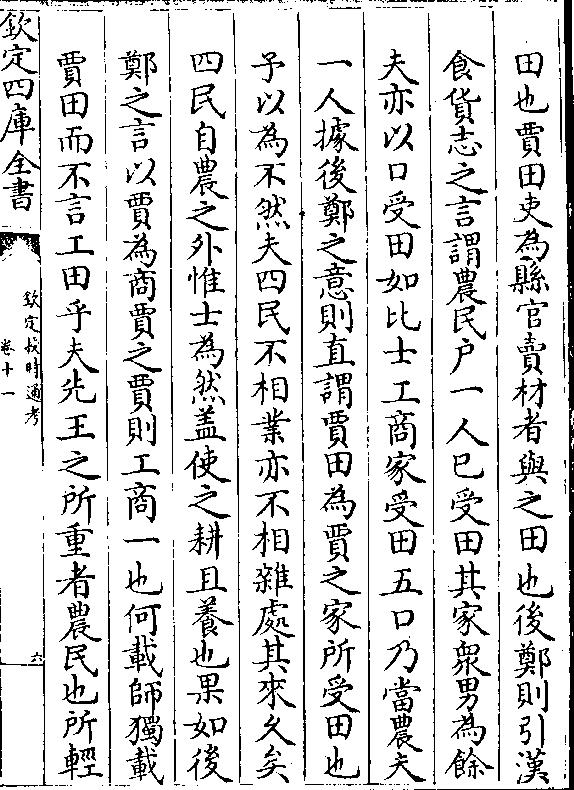 田也賈田吏為縣官賣材者與之田也後鄭則引漢
食貨志之言謂農民户一人已受田其家衆男為餘
夫亦以口受田如比士工商家受田五口乃當農夫
一人據後鄭之意則直謂賈田為賈之家所受田也
予以為不然夫四民不相業亦不相雜處其來久矣
四民自農之外惟士為然盖使之耕且養也果如後
鄭之言以賈為商賈之賈則工商一也何載師獨載
賈田而不言工田乎夫先王之所重者農民也所輕
欽定四庫全書
欽定授時通考
卷十一
六